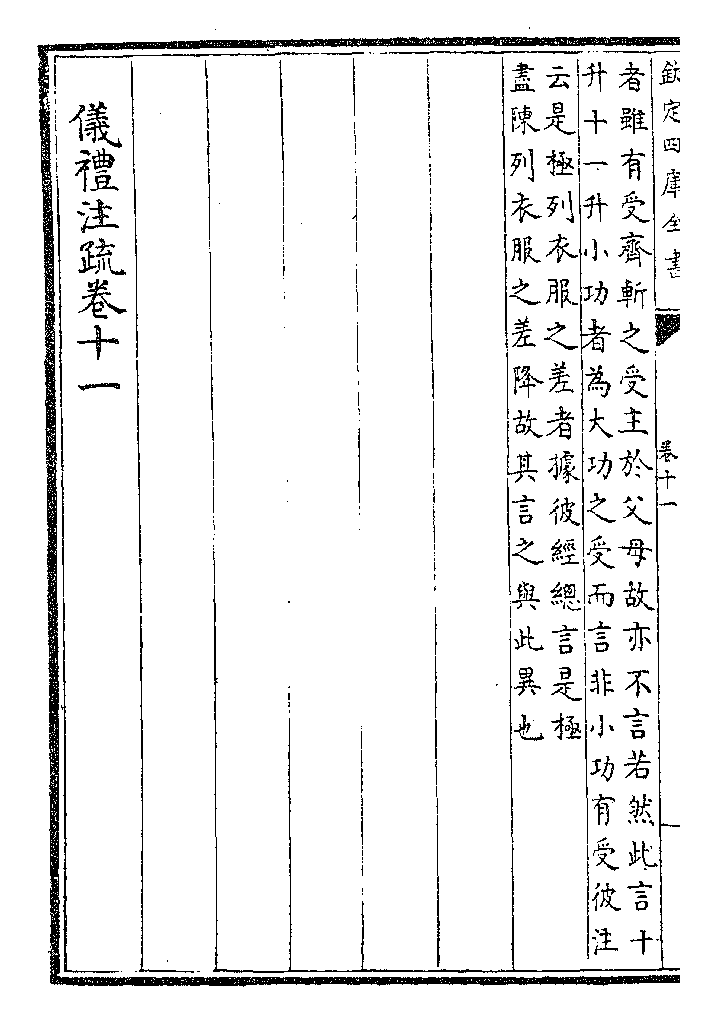 欽定四庫全書
卷十一
者雖有受齊斬之受主於父母故亦不言若然此言十
升十一升小功者為大功之受而言非小功有受彼注
云是極列衣服之差者據彼經總言是極
盡陳列衣服之差降故其言之與此異也
儀禮注疏卷十一